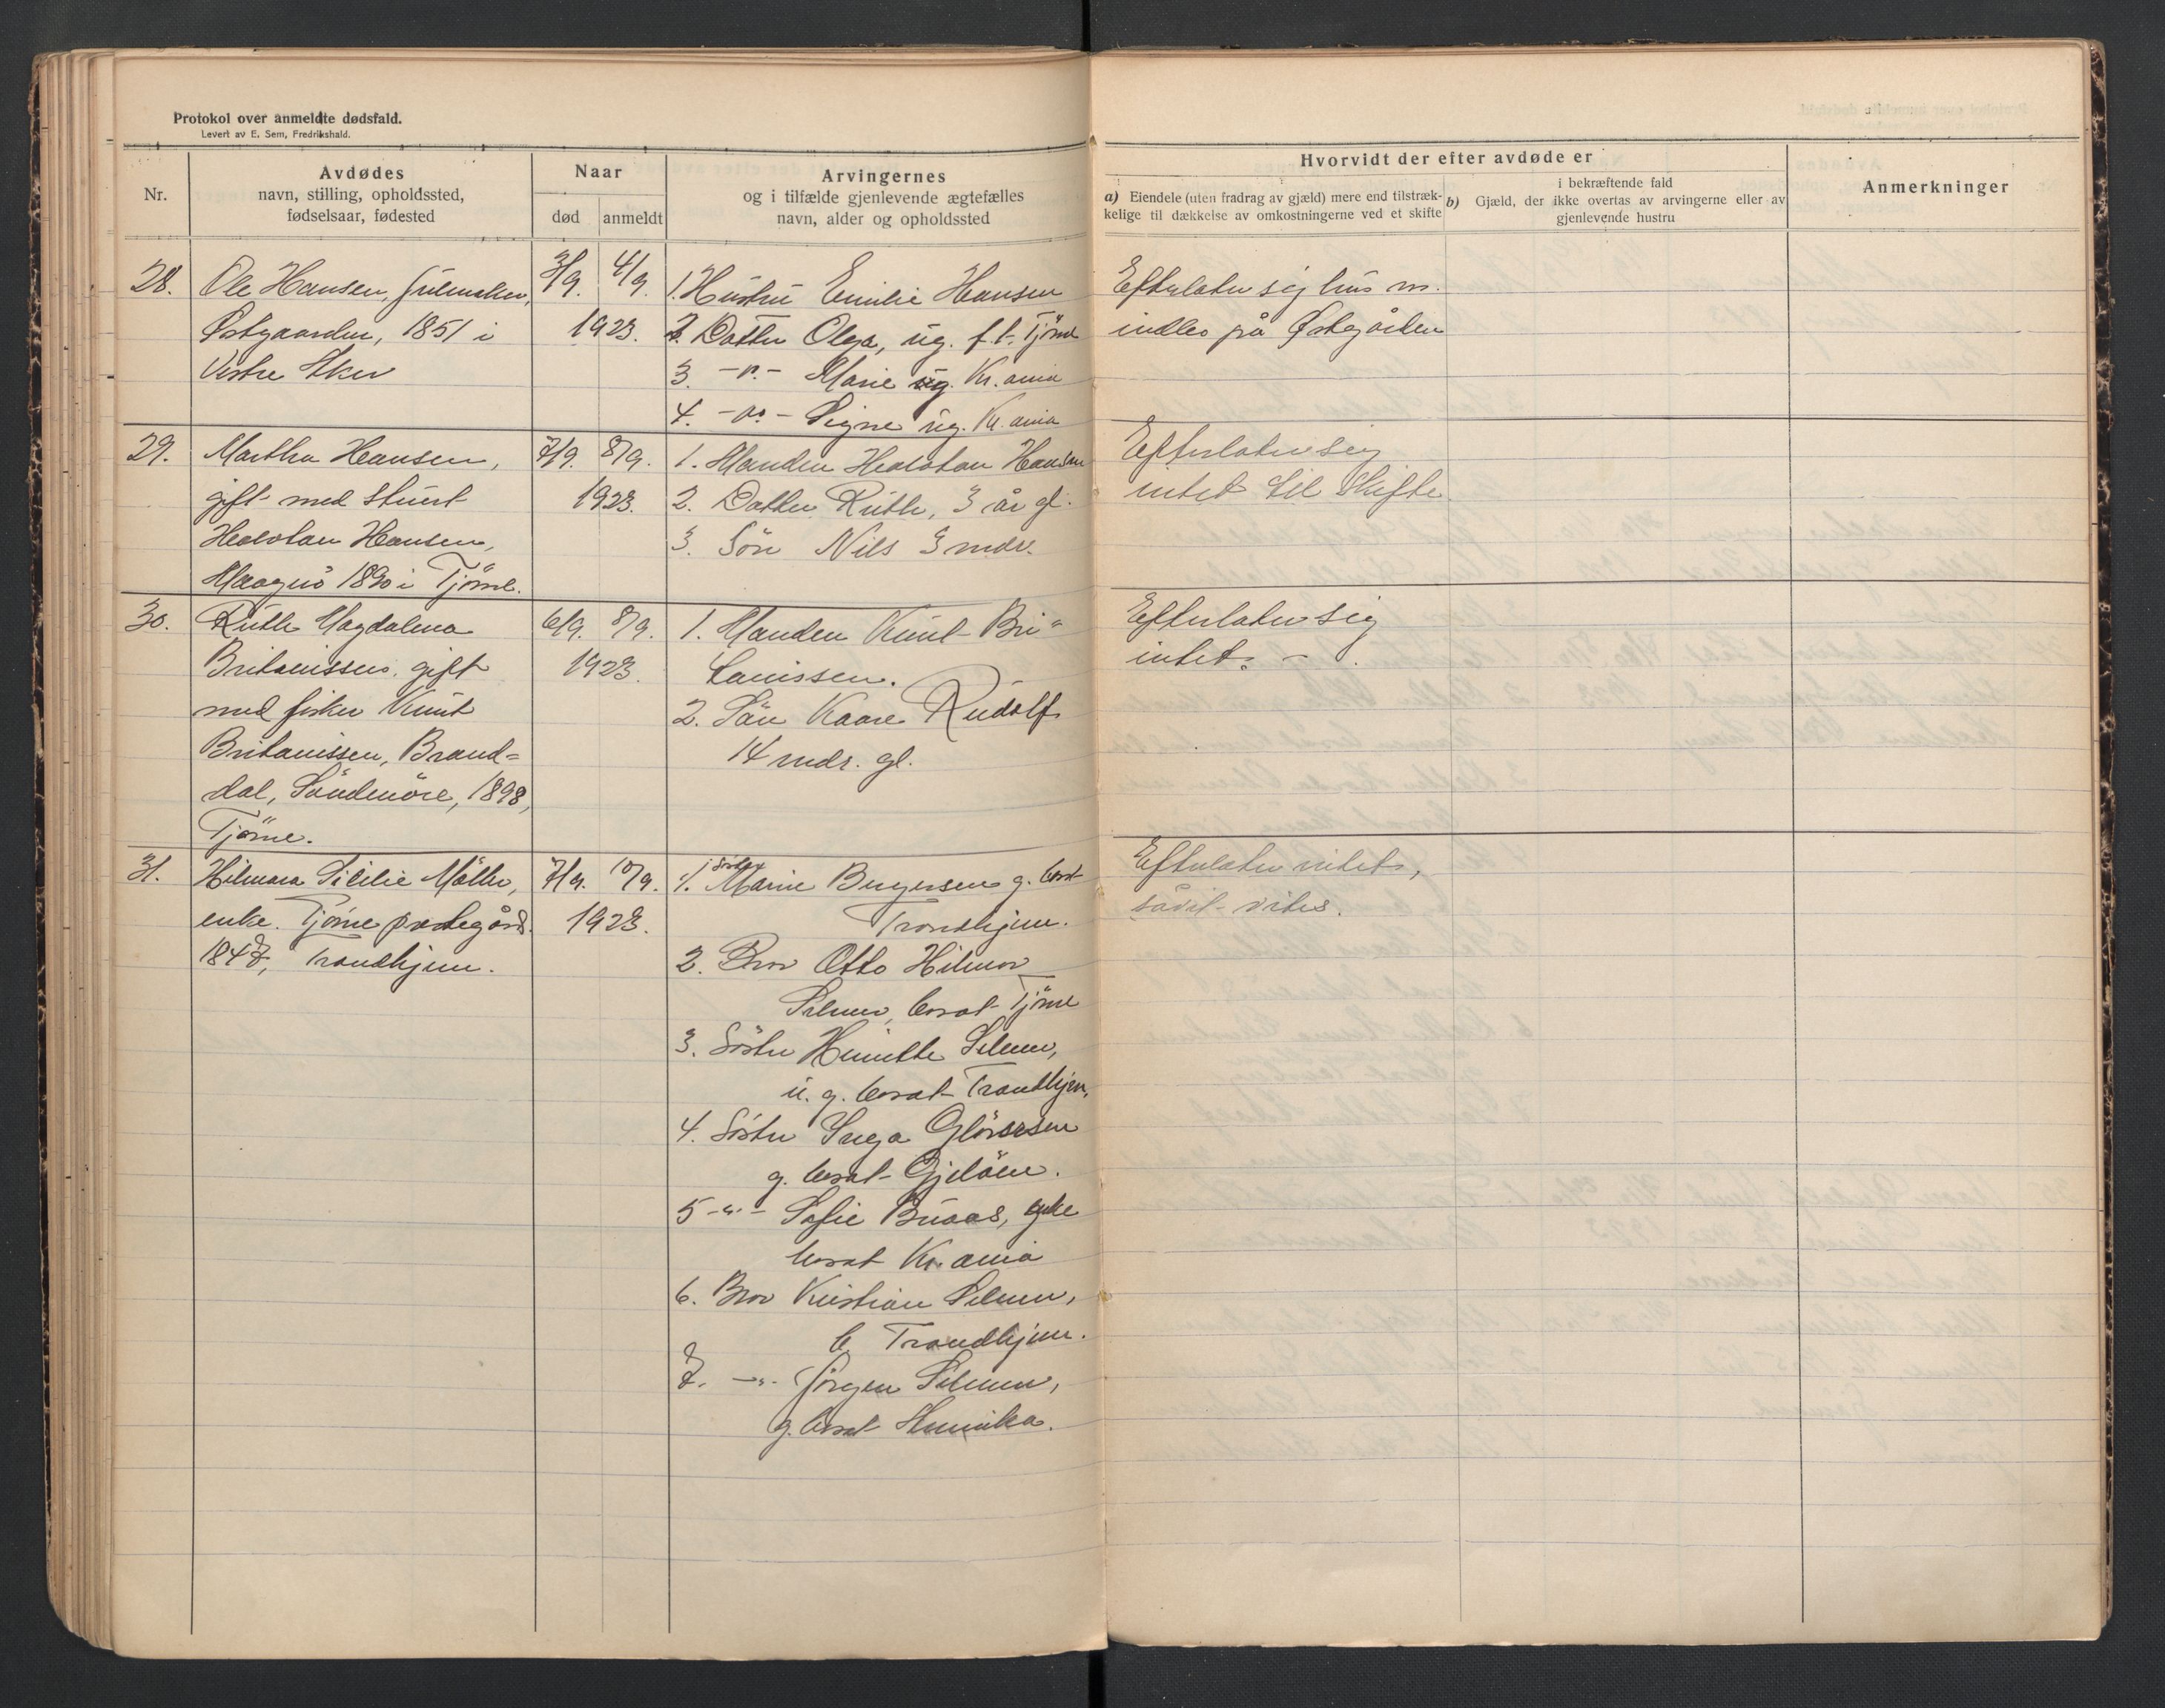 Protokol over anmeldte dødsfald.
Levert av E. Sem, Fredrikshald.
Nr.
Avdødes
navn, stilling, opholdssted,
fødselsaar, fødested
Naar
død anmeldt
Arvingernes
og i tilfælde gjenlevende ægtefælles
navn, alder og opholdssted
Hvorvidt der efter avdøde er
a) Eiendele (uten fradrag av gjæld) mere end tilstræk-
kelige til dækkelse av omkostningerne ved et skifte
i bekræftende fald
b) Gjæld, der ikke overtas av arvingerne eller av
gjenlevende hustru
Anmerkninger
28. Ole Hansen,
Østgaarden, 1851 i
Vestre Aker
3/9. 4/9.
1923.
1. Hustru Emilie Hansen
2. Datter Olga, ug. f.t. Tjöme
3. -"- Marie ug. Kr.ania
4. -"- Signe ug. Kr.ania
Efterlater sig hus m.
indbo på Østegården
29. Martha Hansen,
gift med stuert
Halvdan Hansen,
Maagerö 1890 i Tjöme.
7/9. 8/9.
1923.
1. Manden Halvdan Hansen
2. Datter Ruth, 3 år gl.
3. Sön Nils 3 mdr.
Efterlater sig
intet til skifte
30. Ruth Magdalena
Britanissen, gift
med fisker Knut
Britanissen, Brand=
dal, Söndmöre, 1898,
Tjöme.
6/9. 8/9.
1923.
1. Manden Knut Bri=
tanissen.
2. Sön Kaare Rudolf
14 mdr. gl.
Efterlater sig
intet. -
31. Hilmara Sicilie Möller,
enke. Tjöme prestegård.
1847, Trondhjem.
7/9. 10/9.
1923.
1. Söster Marie Bergersen g. bosat
Trondhjem.
2. Bror Otto Hilmar
Selmer, bosat Tjöme
3. Söster Selmer,
u. g. bosat Trondhjem.
4. Söster Inga
g. bosat
5 -"- Sofie Buaas, enke
bosat Kr.ania
6. Bror Kristian Selmer,
b. Trondhjem.
7. -"- Jörgen Selmer,
g. bosat Amerika.
Efterlater intet,
såvit vites.